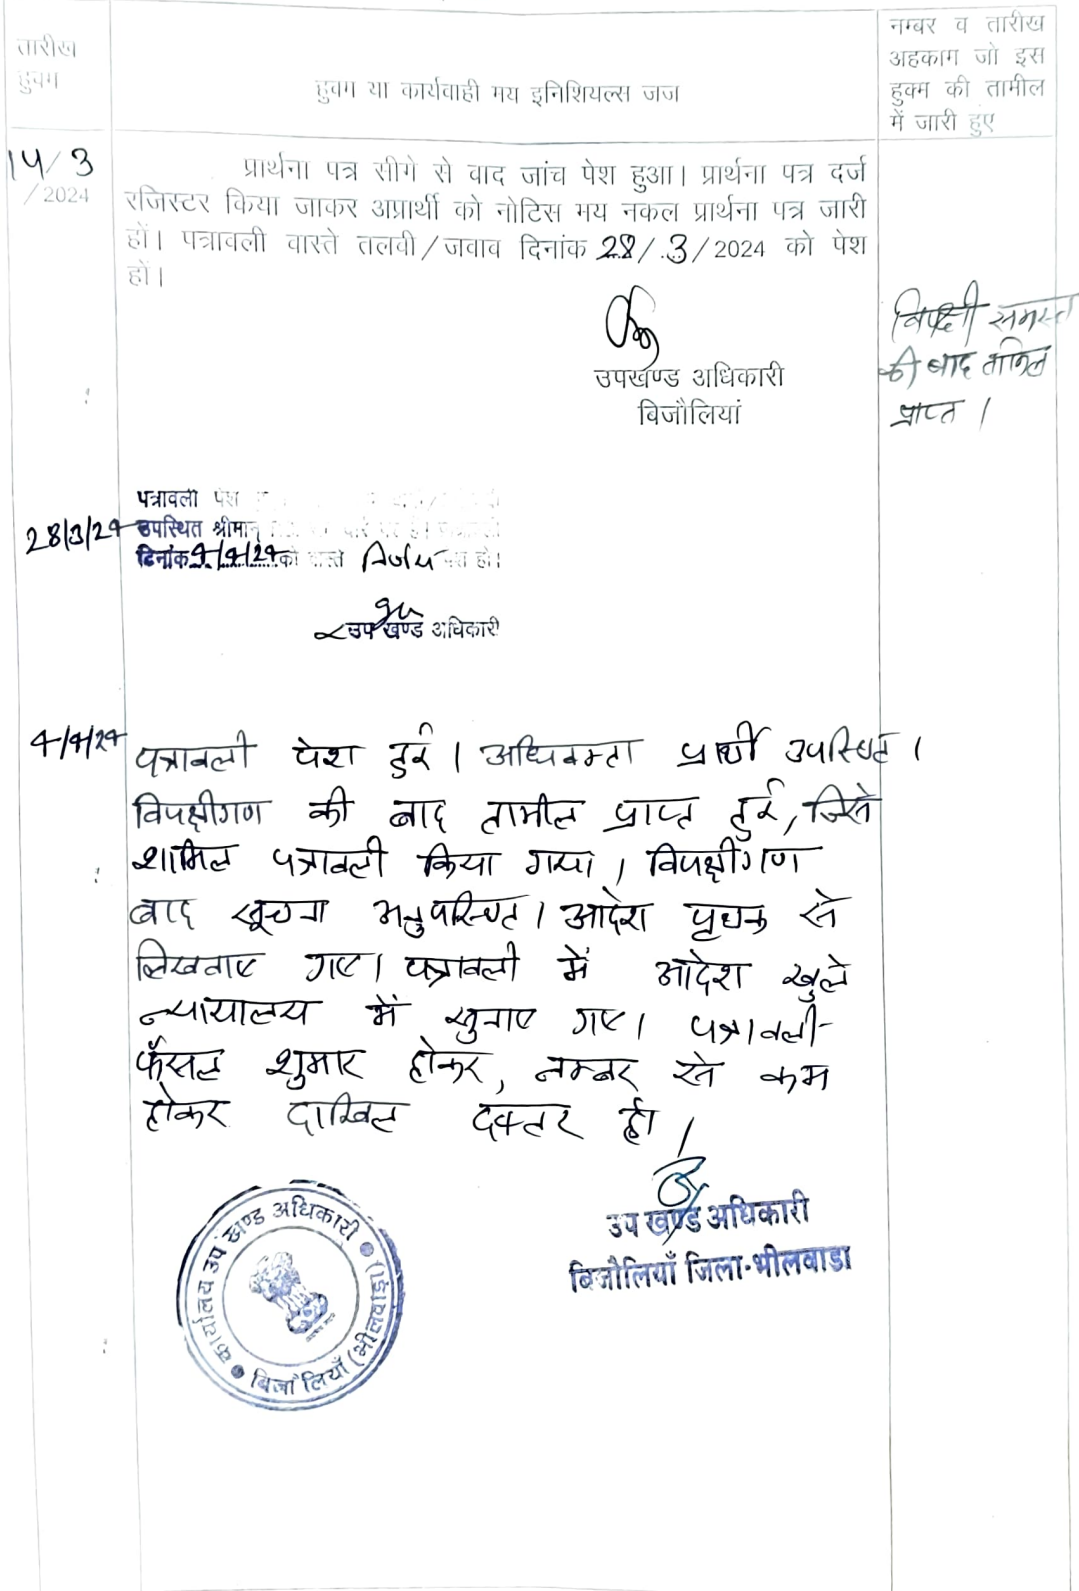 तारीख
हुक्म
हुक्म या कार्यवाही मय इनिशियल्स जज
नम्बर व तारीख
अहकाम जो इस
हुक्म की तामील
में जारी हुए
14/3
/2024
प्रार्थना पत्र सीगे से वाद जांच पेश हुआ। प्रार्थना पत्र दर्ज
रजिस्टर किया जाकर अप्रार्थी को नोटिस मय नकल प्रार्थना पत्र जारी
हों। पत्रावली वास्ते तलवी/जवाव दिनांक 28/3/2024 को पेश
हों।
उपखण्ड अधिकारी
बिजौलियां
विपक्षी समस्त
की बाद तामिल
प्राप्त।
28/3/24
पत्रावली पेश
उपस्थित श्रीमान्
दिनांक 4/4/24 को वास्ते निर्णय पेश हो।
उप खण्ड अधिकारी
4/4/24
पत्रावली पेश हुई। अधिवक्ता प्रार्थी उपस्थित।
विपक्षीगण की बाद तामील प्राप्त हुई, जिसे
शामिल पत्रावली किया गया। विपक्षीगण
बाद सूचना अनुपस्थित। आदेश पृथक से
लिखवाए गए। पत्रावली में आदेश खुले
न्यायालय में सुनाए गए। पत्रावली
फैंसल शुमार होकर, नम्बर से कम
होकर दाखिल दफ्तर हो।
उप खण्ड अधिकारी
बिजौलियाँ जिला-भीलवाडा
कार्यालय उप खण्ड अधिकारी
बिजौलियाँ (भीलवाड़ा)